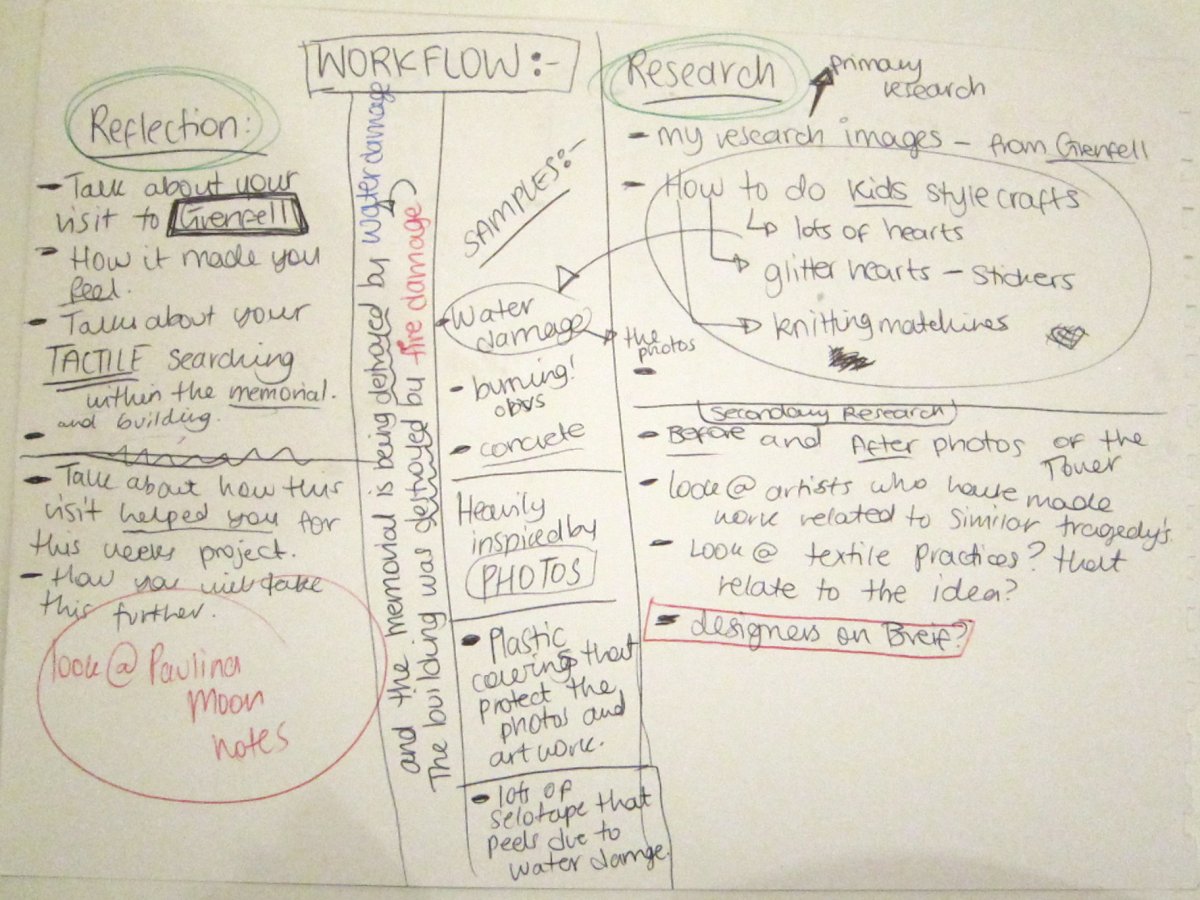 WORKFLOW:-
Reflection:
- Talk about your
visit to Grenfell
- How it made you
feel.
- Talk about your
TACTILE searching
within the memorial.
and building.
-
- Talk about how this
visit helped you for
this weeks project.
- How you will take
this further.
look@ Paulina
Moon
notes
The building was destroyed by fire damage
and the memorial is being destroyed by water damage
SAMPLES:-
- Water
damage
the
photos
- burning!
obvs
- concrete
Heavily
inspired by
PHOTOS
- Plastic
coverings that
protect the
photos and
artwork.
- lots of
selotape that
peels due to
water damge.
Research
primary
research
- my research images - from Grenfell
- How to do kids style crafts
lots of hearts
glitter hearts - stickers
knitting matchines
-
Secondary Research
- Before and After photos of the
Tower
- look@ artists who have made
work related to similar tragedy's.
- Look@ textile practices? that
relate to the idea?
- designers on Breif?